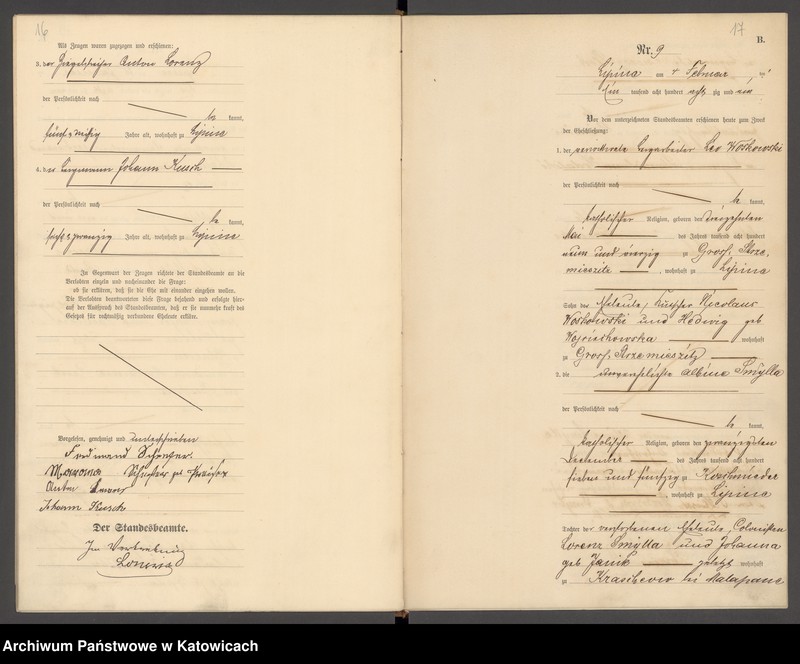 16
Als Zeugen waren zugezogen und erschienen:
3. der Anton Lorenz
der Persönlichkeit nach
be kannt,
fünf & Jahre alt, wohnhaft zu Lipine
4. der Bergmann Johann Kusch
der Persönlichkeit nach
be kannt,
sechs & zwanzig Jahre alt, wohnhaft zu Lipine
In Gegenwart der Zeugen richtete der Standesbeamte an die
Verlobten einzeln und nacheinander die Frage:
ob sie erklären, daß sie die Ehe mit einander eingehen wollen.
Die Verlobten beantworteten diese Frage bejahend und erfolgte hier-
auf der Ausspruch des Standesbeamten, daß er sie nunmehr kraft des
Gesetzes für rechtmäßig verbundene Eheleute erkläre.
Vorgelesen, genehmigt und unterschrieben
Ferdinand
Marianna geb.
Anton
Johann Kusch
Der Standesbeamte.
In Vertretung
17
B.
Nr. 9
Lipine am Februar
Ein tausend acht hundert acht zig und ein
Vor dem unterzeichneten Standesbeamten erschienen heute zum Zweck
der Eheschließung:
1. der verwittwete Bergarbeiter Leo Woskowski
der Persönlichkeit nach
be kannt,
katholischer Religion, geboren den dreizehnten
Mai des Jahres tausend acht hundert
neun und vierzig zu Groß
, wohnhaft zu Lipine
Sohn des Eheleute, Nicolaus
Woskowski und Hedwig geb.
Wojciechowska wohnhaft
zu Groß
2. die unverehelichte Albine Smylla
der Persönlichkeit nach
be kannt,
katholischer Religion, geboren den zwanzigsten
December des Jahres tausend acht hundert
sieben und fünfzig zu
, wohnhaft zu Lipine
Tochter der verstorbenen Eheleute, Colonisten
Lorenz Smylla und Johanna
geb. Janik zuletzt wohnhaft
zu Krascheow bei Malapane
Archiwum Państwowe w Katowicach